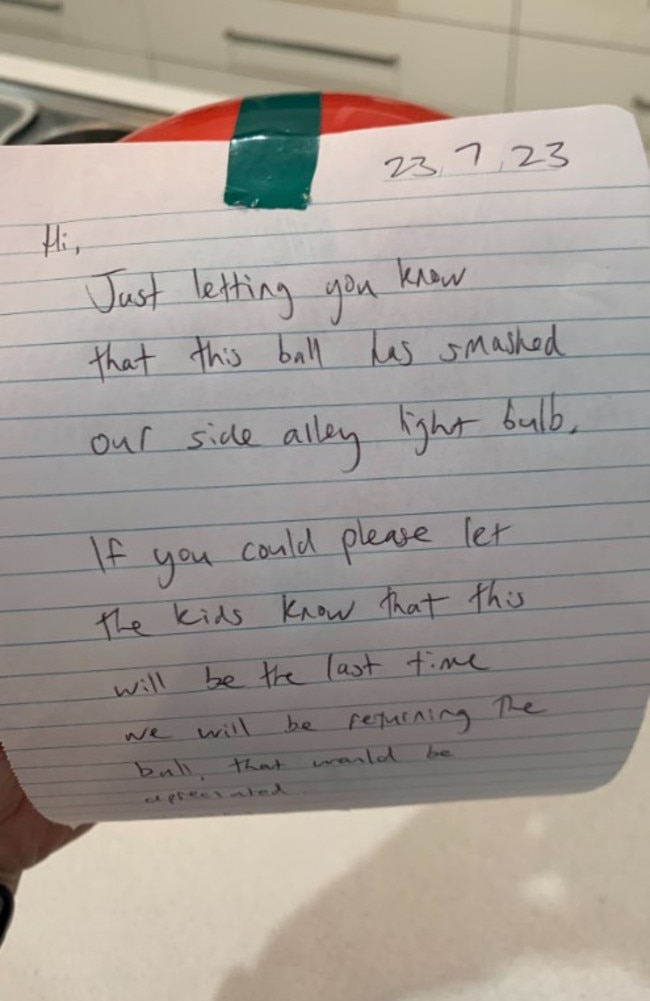 23.7.23
Hi,
Just letting you know
that this ball has smashed
our side alley light bulb.
If you could please let
the kids know that this
will be the last time
we will be returning the
ball, that would be
apreciated